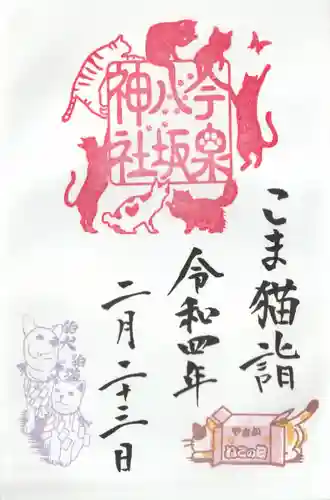 今泉
八坂
神社
こま猫詣
令和四年
二月二十三日
狛犬
狛猫
ねこの日